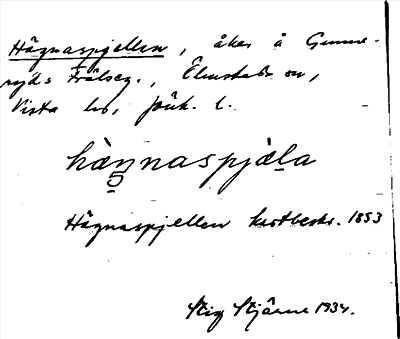 Hägnaspjellen, åker å Gunne-
ryds Frälseg., Ölmstads sn,
Vista hd, Jönk. l.
hàŋnaspjæ̀la
Hägnaspjellen kartbeskr. 1853
Stig Stjärne 1934.